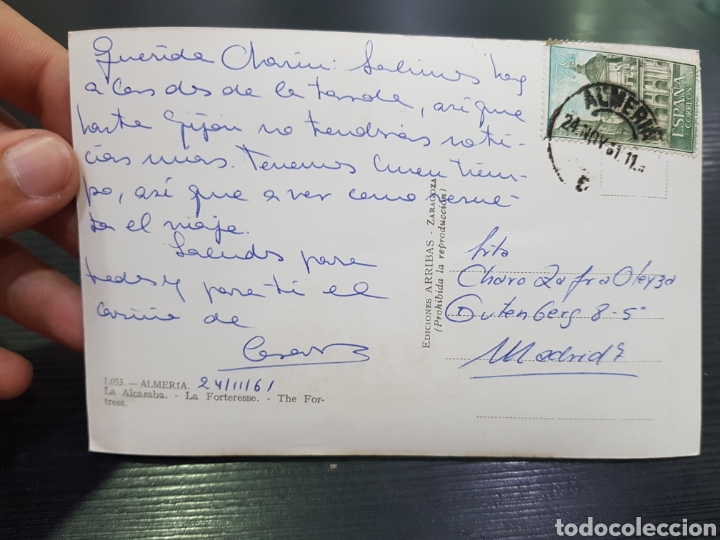 Querida Charin: Salimos hoy
a las dos de la tarde, así que
hasta Gijón no tendrás noti-
cias mias. Tenemos buen tiem-
po, así que a ver como resul-
ta el viaje.
Saludos para
todos y para ti el
cariño de
1.053. — ALMERIA. 24/11/61
La Alcazaba. - La Forteresse. - The For-
tress.
EDICIONES ARRIBAS - ZARAGOZA
(Prohibida la reproducción)
ESPAÑA
CORREOS
ALMERIA
24 NOV 61
Srta
Charo Zafra Oleyza
Gutenberg 8-5º
Madrid 7
todocoleccion